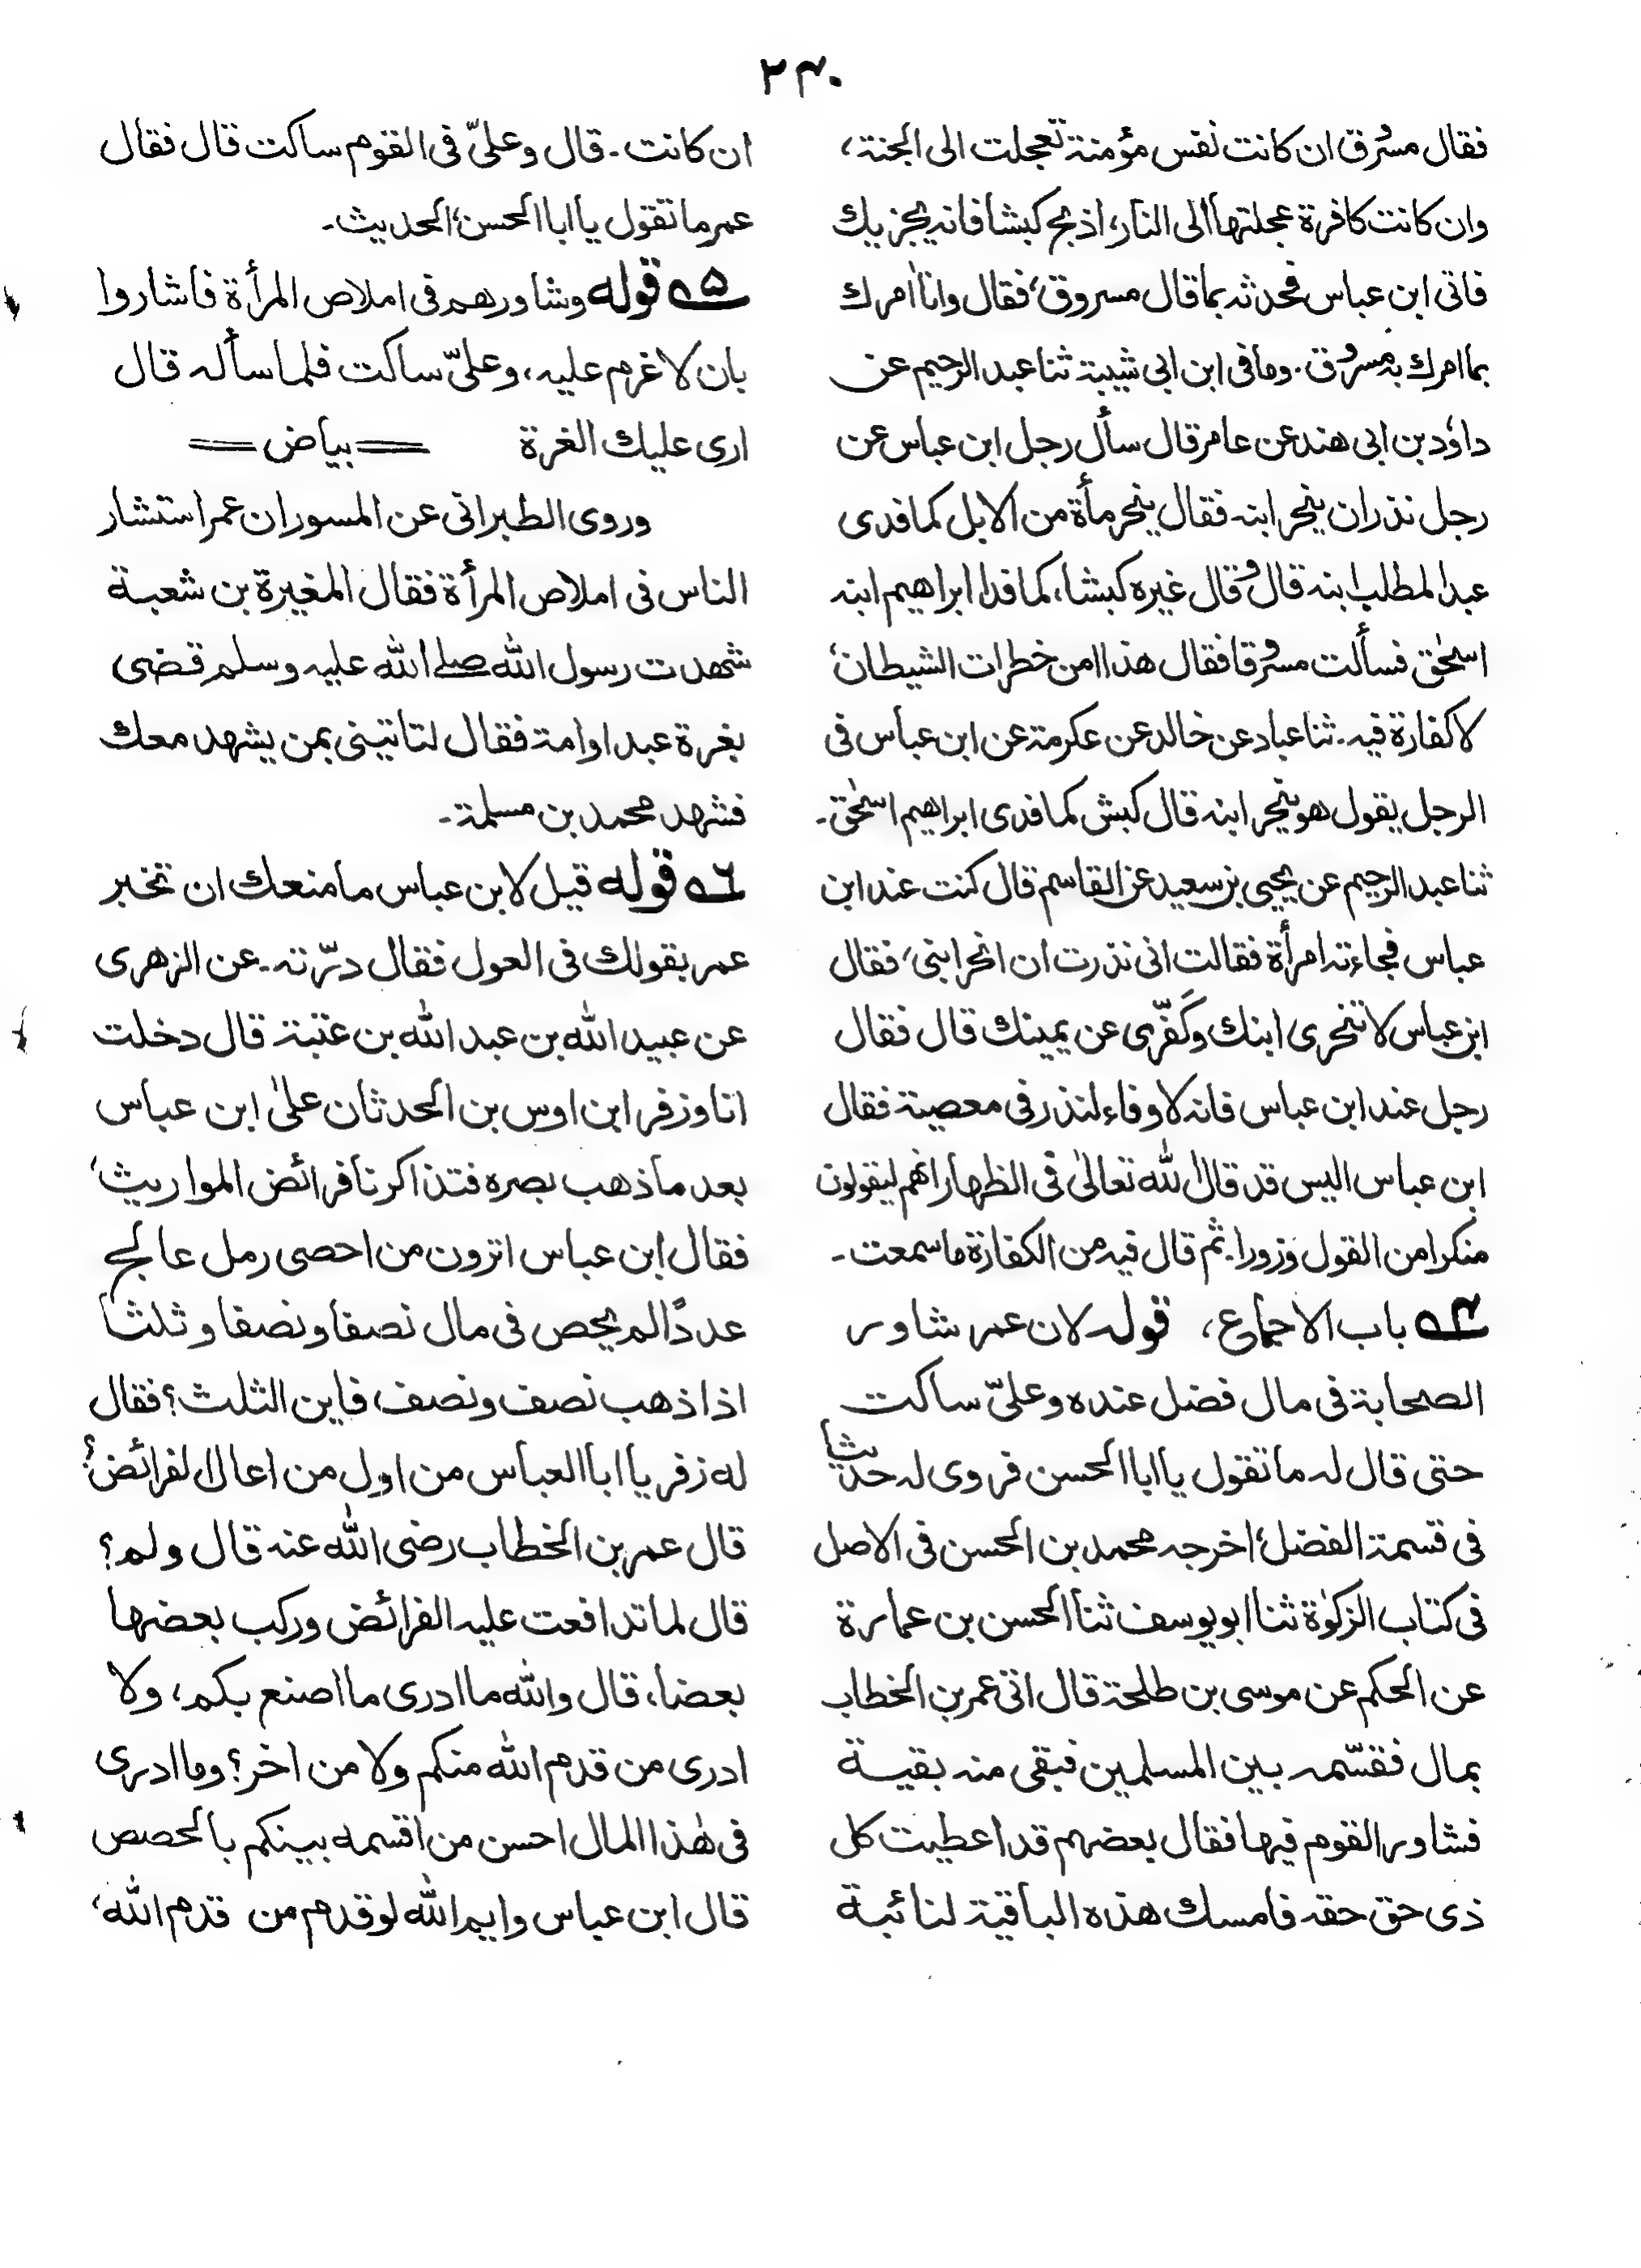 ۲۴۰
فقال مسروق ان كانت نفس مؤمنة تعجلت الى الجنة،
وان كانت كافرة عجلتها الى النار، اذبح كبشا فانه يجزيك
فاتى ابن عباس فحدثه بما قال مسروق، فقال وانا امرك
بما امرك به مسروق. وما فى ابن ابى شيبة ثنا عبد الرحيم عن
داؤد بن ابى هند عن عامر قال سأل رجل ابن عباس عن
رجل نذر ان ينحر ابنه فقال ينحر مأة من الابل كما فدى
عبد المطلب ابنه قال وقال غيره كبشا، كما فدا ابراهيم ابنه
اسحٰق فسألت مسروقا فقال هذا من خطرات الشيطان،
لا كفارة فيه۔ ثنا عباد عن خالد عن عكرمة عن ابن عباس فى
الرجل يقول هو ينحر ابنه قال كبش كما فدى ابراهيم اسحٰق۔
ثنا عبد الرحيم عن يحيى بن سعيد عن القاسم قال كنت عند ابن
عباس فجاءته امرأة فقالت انى نذرت ان انحر ابنى، فقال
ابن عباس لا تنحرى ابنك وكَفّرى عن يمينك قال فقال
رجل عند ابن عباس فانه لا وفاء لنذر فى معصية فقال
ابن عباس اليس قد قال الله تعالىٰ فى الظهار انهم ليقولون
منكرا من القول وزورا۔ ثم قال فيه من الكفارة ما سمعت۔
۵۴ باب الاجماع، قوله لان عمر شاور
الصحابة فى مال فضل عنده وعلىّ ساكت
حتى قال له ما تقول يا ابا الحسن فروى له حديثا
فى قسمة الفضل، اخرجه محمد بن الحسن فى الاصل
فى كتاب الزكوٰة ثنا ابو يوسف ثنا الحسن بن عمارة
عن الحكم عن موسى بن طلحة قال اتى عمر بن الخطاب
بمال فقسّمه بين المسلمين فبقى منه بقية
فشاور القوم فيها فقال بعضهم قد اعطيت كل
ذى حق حقه فامسك هذه الباقية لنائبة
ان كانت۔ قال وعلىّ فى القوم ساكت قال فقال
عمر ما تقول يا ابا الحسن، الحديث۔
۵۵ قوله وشاورهم فى املاص المرأة فاشاروا
بان لا غرم عليه، وعلىّ ساكت فلما سأله قال
ارى عليك الغرة == بياض ==
وروى الطبرانى عن المسور ان عمر استشار
الناس فى املاص المرأة فقال المغيرة بن شعبة
شهدت رسول الله صلے الله عليه وسلم قضى
بغرة عبد او امة فقال لتأتينى بمن يشهد معك
فشهد محمد بن مسلمة۔
۵۶ قوله قيل لابن عباس ما منعك ان تخبر
عمر بقولك فى العول فقال درّته۔ عن الزهرى
عن عبيد الله بن عبد الله بن عتبة قال دخلت
انا وزفر ابن اوس بن الحدثان علىٰ ابن عباس
بعد ما ذهب بصره فتذاكرنا فرائض المواريث،
فقال ابن عباس اترون من احصى رمل عالج
عددًا لم يحص فى مال نصفا ونصفا وثلثا
اذا ذهب نصف ونصف، فاين الثلث؟ فقال
له زفر يا ابا العباس من اول من اعال الفرائض؟
قال عمر بن الخطاب رضى الله عنه قال ولم؟
قال لما تدافعت عليه الفرائض وركب بعضها
بعضا، قال والله ما ادرى ما اصنع بكم، ولا
ادرى من قدم الله منكم ولا من اخر؟ وما ادرى
فى هٰذا المال احسن من اقسمه بينكم بالحصص
قال ابن عباس وايم الله لو قدم من قدم الله،